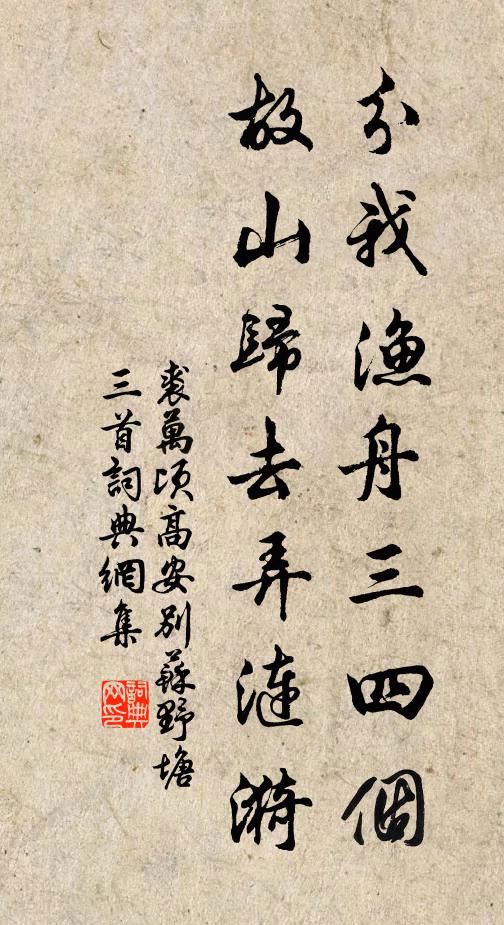 分我漁舟三四個
故山歸去弄漣漪
裘萬頃高安別蘇野塘
三首詞典網集
詞典網印